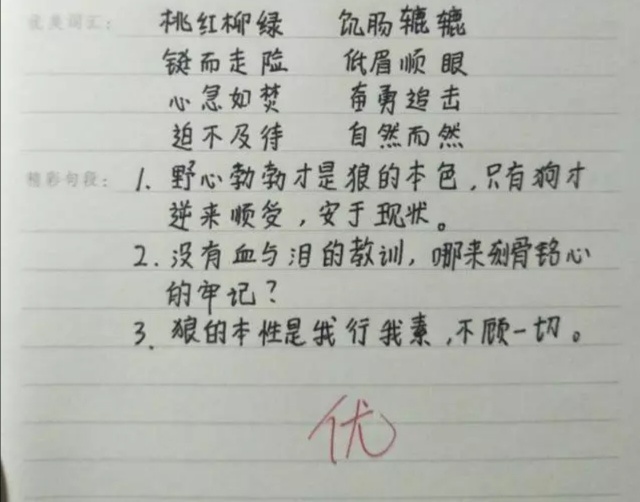 优美词汇： 桃红柳绿 饥肠辘辘
铤而走险 低眉顺眼
心急如焚 奋勇追击
迫不及待 自然而然
精彩句段： 1. 野心勃勃才是狼的本色，只有狗才
逆来顺受，安于现状。
2. 没有血与泪的教训，哪来刻骨铭心
的牢记？
3. 狼的本性是我行我素，不顾一切。
优